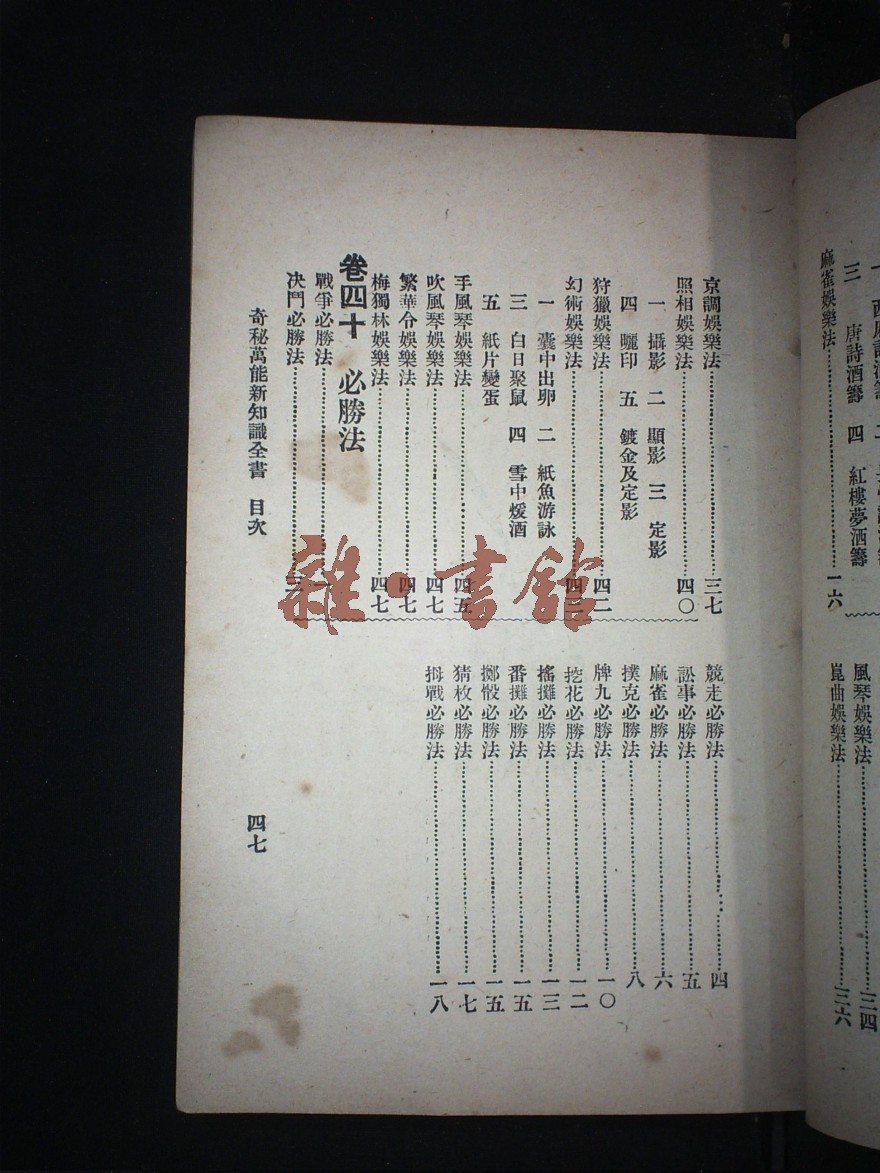 三 唐詩酒籌 四 紅樓夢酒籌
麻雀娛樂法……一六
風琴娛樂法……三四
崑曲娛樂法……三六
京調娛樂法……三七
照相娛樂法……四〇
一 攝影 二 顯影 三 定影
四 曬印 五 鍍金及定影
狩獵娛樂法……四二
幻術娛樂法……四三
一 囊中出卵 二 紙魚游詠
三 白日聚鼠 四 雪中煖酒
五 紙片變蛋
手風琴娛樂法……四五
吹風琴娛樂法……四七
繁華令娛樂法……四七
梅獨林娛樂法……四七
卷四十 必勝法
戰爭必勝法……一
決鬥必勝法……三
競走必勝法……四
訟事必勝法……五
麻雀必勝法……六
撲克必勝法……八
牌九必勝法……一〇
挖花必勝法……一二
搖攤必勝法……一三
番攤必勝法……一五
擲骰必勝法……一五
猜枚必勝法……一七
拇戰必勝法……一八
奇秘萬能新知識全書 目次
四七
雜·書館